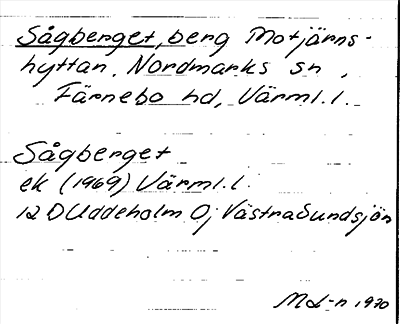 Sågberget, berg Motjärns-
hyttan. Nordmarks sn,
Färnebo hd, Värml. l.
Sågberget
ek (1969) Värml. l.
12 D Uddeholm Oj Västra Sundsjön
ML-n 1970